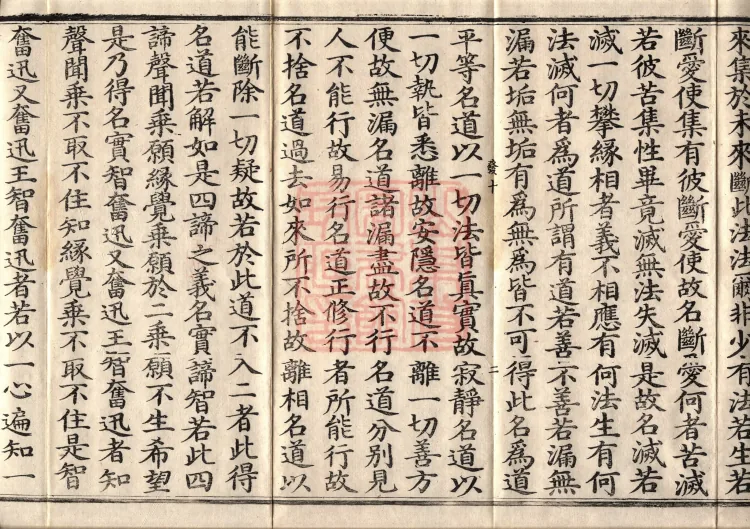 來集於未來斷此法法爾非少有法若生若
斷愛使集有彼斷愛使故名斷愛何者苦滅
若彼苦集性畢竟滅無法失滅是故名滅若
滅一切攀緣相者義不相應有何法生有何
法滅何者爲道所謂有道若善不善若漏無
漏若垢無垢有爲無爲皆不可得此名爲道
發十 二
平等名道以一切法皆眞實故寂靜名道以
一切執皆悉離故安隱名道不離一切善方
便故無漏名道諸漏盡故不行名道分別見
人不能行故易行名道正修行者所能行故
不捨名道過去如來所不捨故離相名道以
能斷除一切疑故若於此道不入二者此得
名道若解如是四諦之義名實諦智若此四
諦聲聞乘願緣覺乘願於二乘願不生希望
是乃得名實智奮迅又奮迅王智奮迅者知
聲聞乘不取不住知緣覺乘不取不住是智
奮迅又奮迅王智奮迅者若以一心遍知一